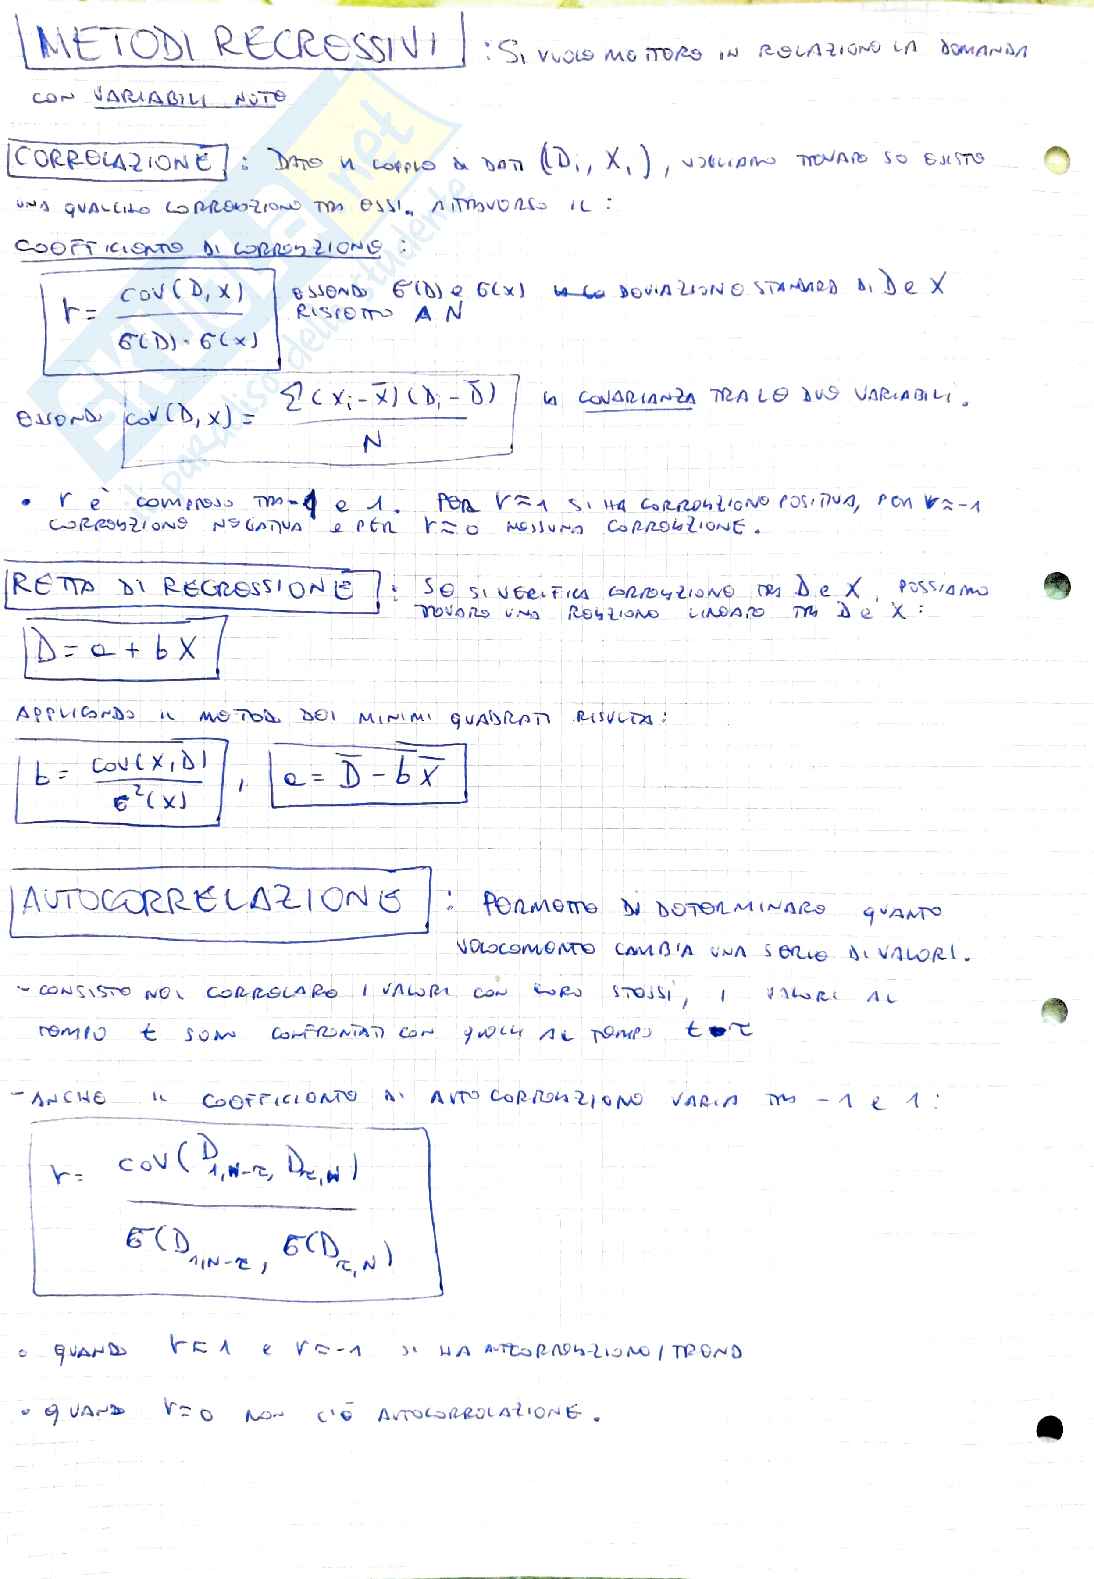 METODI REGRESSIVI : SI VUOLE METTERE IN RELAZIONE LA DOMANDA
CON VARIABILI NOTE
CORRELAZIONE : DATE N COPPIE DI DATI (Di, Xi), VOGLIAMO TROVARE SE ESISTE
UNA QUALCHE CORRELAZIONE TRA ESSI. ATTRAVERSO IL :
COEFFICIENTE DI CORRELAZIONE :
r = COV(D,X) / σ(D)·σ(X) ESSENDO σ(D) e σ(X) LA DEVIAZIONE STANDARD DI D e X
RISPETTO A N
ESSENDO COV(D,X) = Σ(Xi-X̄)(Di-D̄) / N LA COVARIANZA TRA LE DUE VARIABILI.
• r è COMPRESO TRA -1 e 1. PER r≈1 SI HA CORRELAZIONE POSITIVA, PER r≈-1
CORRELAZIONE NEGATIVA e PER r≈0 NESSUNA CORRELAZIONE.
RETTA DI REGRESSIONE : SE SI VERIFICA CORRELAZIONE TRA D e X, POSSIAMO
TROVARE UNA RELAZIONE LINEARE TRA D e X :
D = a + bX
APPLICANDO IL METODO DEI MINIMI QUADRATI RISULTA :
b = COV(X,D) / σ²(X) , a = D̄ - b̄X̄
AUTOCORRELAZIONE : PERMETTE DI DETERMINARE QUANTO
VELOCEMENTE CAMBIA UNA SERIE DI VALORI.
- CONSISTE NEL CORRELARE I VALORI CON LORO STESSI, I VALORI AL
TEMPO t SONO CONFRONTATI CON QUELLI AL TEMPO t-τ
- ANCHE IL COEFFICIENTE DI AUTOCORRELAZIONE VARIA TRA -1 e 1 :
r = COV(D1,N-τ, Dτ,N) / σ(D1,N-τ, σ(Dτ,N)
• QUANDO r≈1 e r≈-1 SI HA AUTOCORRELAZIONE/TREND
• QUANDO r=0 NON C'È AUTOCORRELAZIONE.
SKUOLA.net
il paradiso dello studente